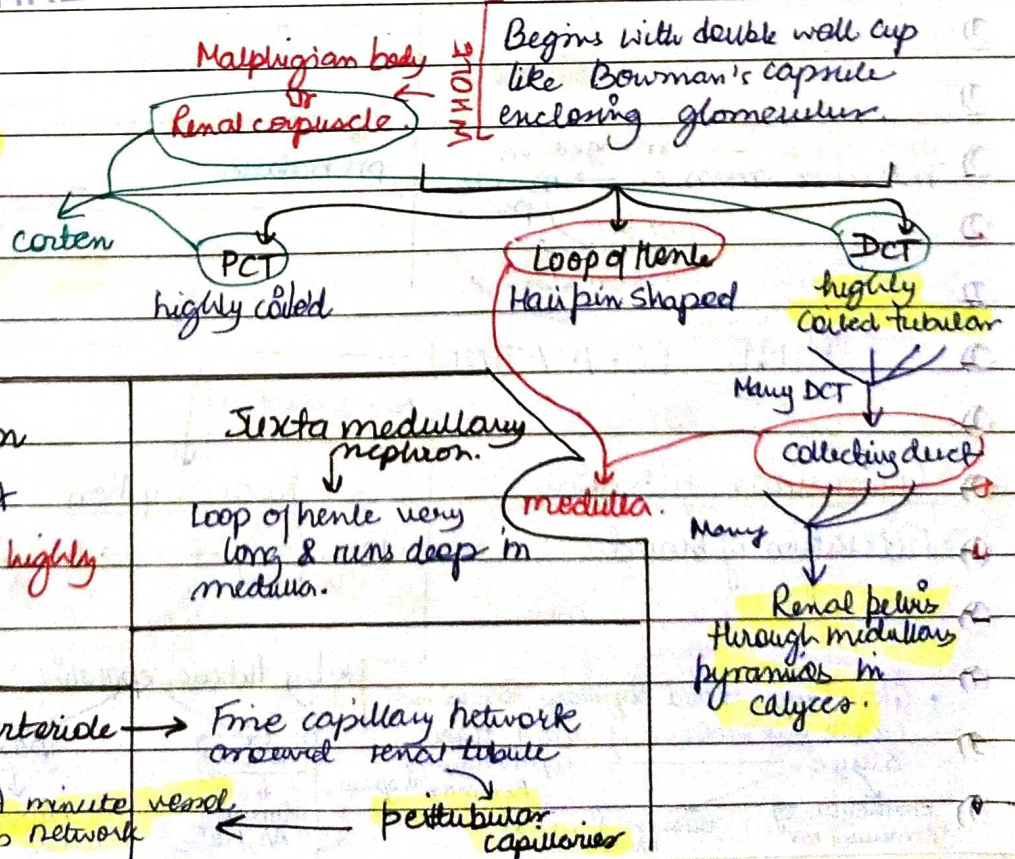 Malphigian body
or
Renal corpuscle
WHOLE
Begins with double wall cup
like Bowman's capsule
enclosing glomerulus.
corten
PCT
highly coiled
Loop of Henle
Hairpin shaped
DCT
highly
Coiled tubular
Many DCT
Collecting duct
medulla.
Many
Renal pelvis
through medullary
pyramids in
calyces.
Juxta medullary
nephron.
Loop of henle very
long & runs deep in
medulla.
highly
Fine capillary network
around renal tubule
peritubular
capillaries
minute vessel
network